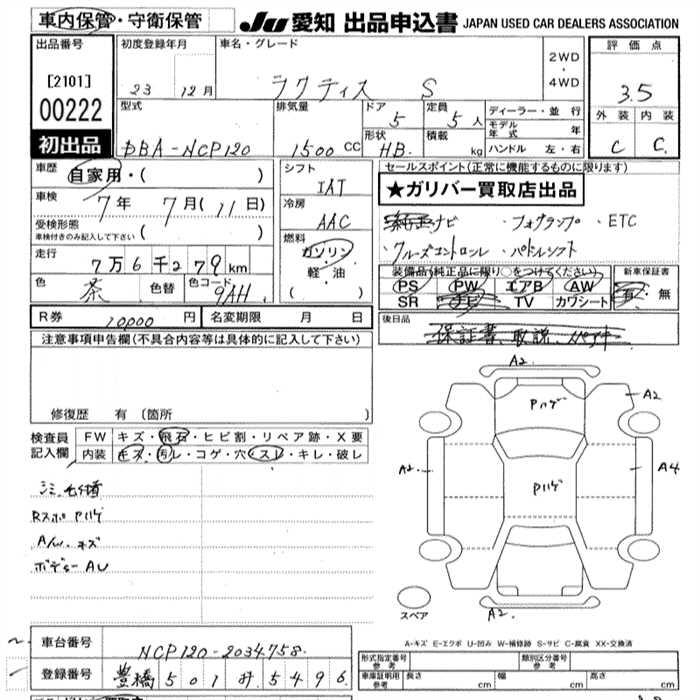 車内保管・守衛保管
JU 愛知 出品申込書 JAPAN USED CAR DEALERS ASSOCIATION
出品番号
[2101]
00222
初出品
初度登録年月
23 12月
車名・グレード
ラクティス S
2WD
・
4WD
評価点
3.5
外装 内装
C C
型式
DBA-NCP120
排気量
1500 CC
ドア
5
定員
5人
形状
HB
積載
kg
ディーラー・並行
モデル年式 年
ハンドル 左・右
車歴
自家用・( )
車検
7年 7月(11日)
受検形態
車検付きのみ記入して下さい ( )
走行
7万6千279km
色
茶
色替
色コード
9AH
シフト
IAT
冷房
AAC
燃料
ガソリン
・
軽・油
( )
セールスポイント(正常に機能するものに限ります)
★ガリバー買取店出品
純正ナビ ・フォグランプ ・ETC
・クルーズコントロール ・パドルシフト
装備品(純正品に限り○をつけてください)
PS PW エアB AW
SR TV カワシート
新車保証書
有・無
R券 10000円
名変期限 月 日
後日品
保証書、取説、スペアキー
注意事項申告欄(不具合内容等は具体的に記入して下さい)
修復歴 有 〔箇所 〕
検査員記入欄
FW キズ・飛石・ヒビ割・リペア跡・X要
内装 キズ・汚レ・コゲ・穴・スレ・キレ・破レ
Rスポ Pハゲ
A/W キズ
ボディーAU
A2
A2
Pハゲ
A2
Pハゲ
A4
A2
スペア
A-キズ E-エクボ U-凹み W-補修跡 S-サビ C-腐食 XX-交換済
車台番号
NCP120-2034758
登録番号
豊橋501 5496
形式指定番号 参考
類別区分番号 参考
車庫証明用 参考
長さ cm
幅 cm
高さ cm